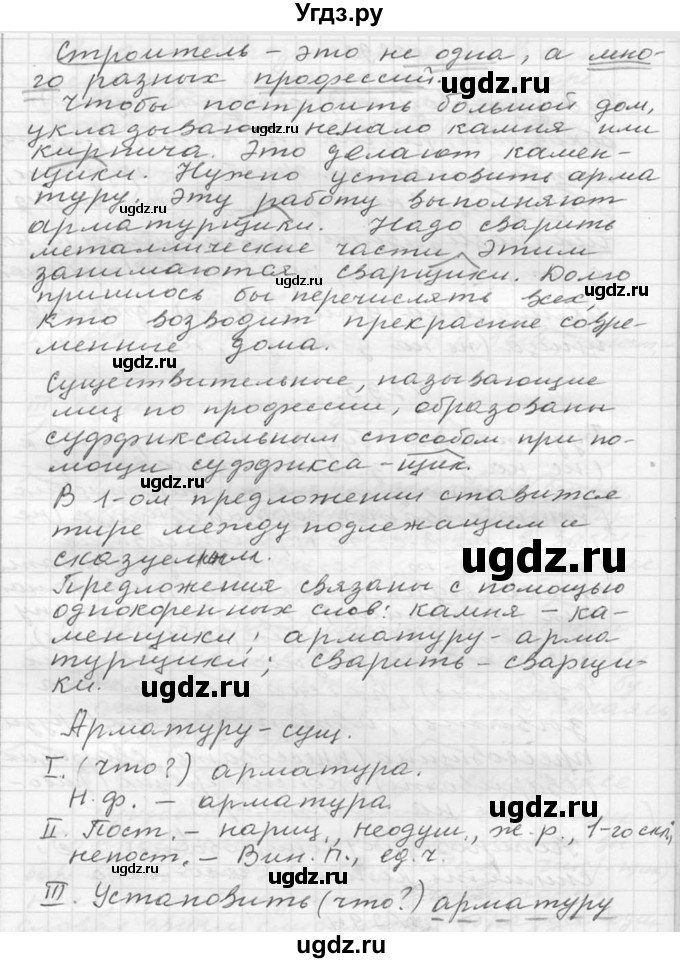 Угдз.ру
Строитель - это не одна, а мно-
го разных профессий.
Чтобы построить большой дом,
укладывают немало камня или
кирпича. Это делают камен-
щики. Нужно установить арма
туру, эту работу выполняют
арматурщики. Надо сварить
металлические части, этим
занимаются сварщики. Долго
пришлось бы перечислять всех,
кто возводит прекрасные совре-
менные дома.
Существительные, называющие
лиц по профессии, образованы
суффиксальным способом при по-
мощи суффикса -щик.
В 1-ом предложении ставится
тире между подлежащим и
сказуемым.
Предложения связаны с помощью
однокоренных слов: камня - ка-
менщики; арматуру - арма
турщики; сварить - сварщи-
ки.
Арматуру - сущ.
I. (что?) арматура.
Н.ф. - арматура.
II. Пост. - нариц., неодуш., ж.р., 1-го скл,
непост. - Вин. п., ед.ч.
III. Установить (что?) арматуру
ugdz.ru
ugdz.ru
ugdz.ru
ugdz.ru
ugdz.ru
ugdz.ru
ugdz.ru
ugdz.ru
ugdz.ru
ugdz.ru
ugdz.ru
ugdz.ru
ugdz.ru
ugdz.ru